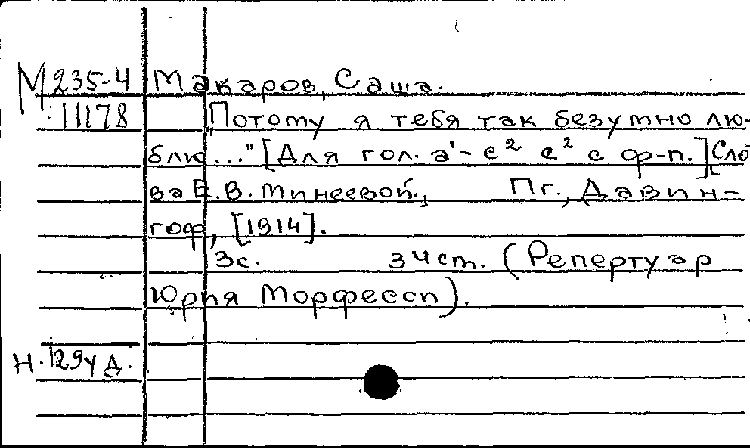 М 235-4 Макаров, Саша.
11178 "Потому я тебя так безумно лю-
блю..." [Для гол. а'-е² с ф-п.] Сло
ва Е.В. Минеевой., Пг., Давин-
гоф, [1914].
3с. 3 Чст. (Репертуар
Юрия Морфесси).
Н. 129 у Д.